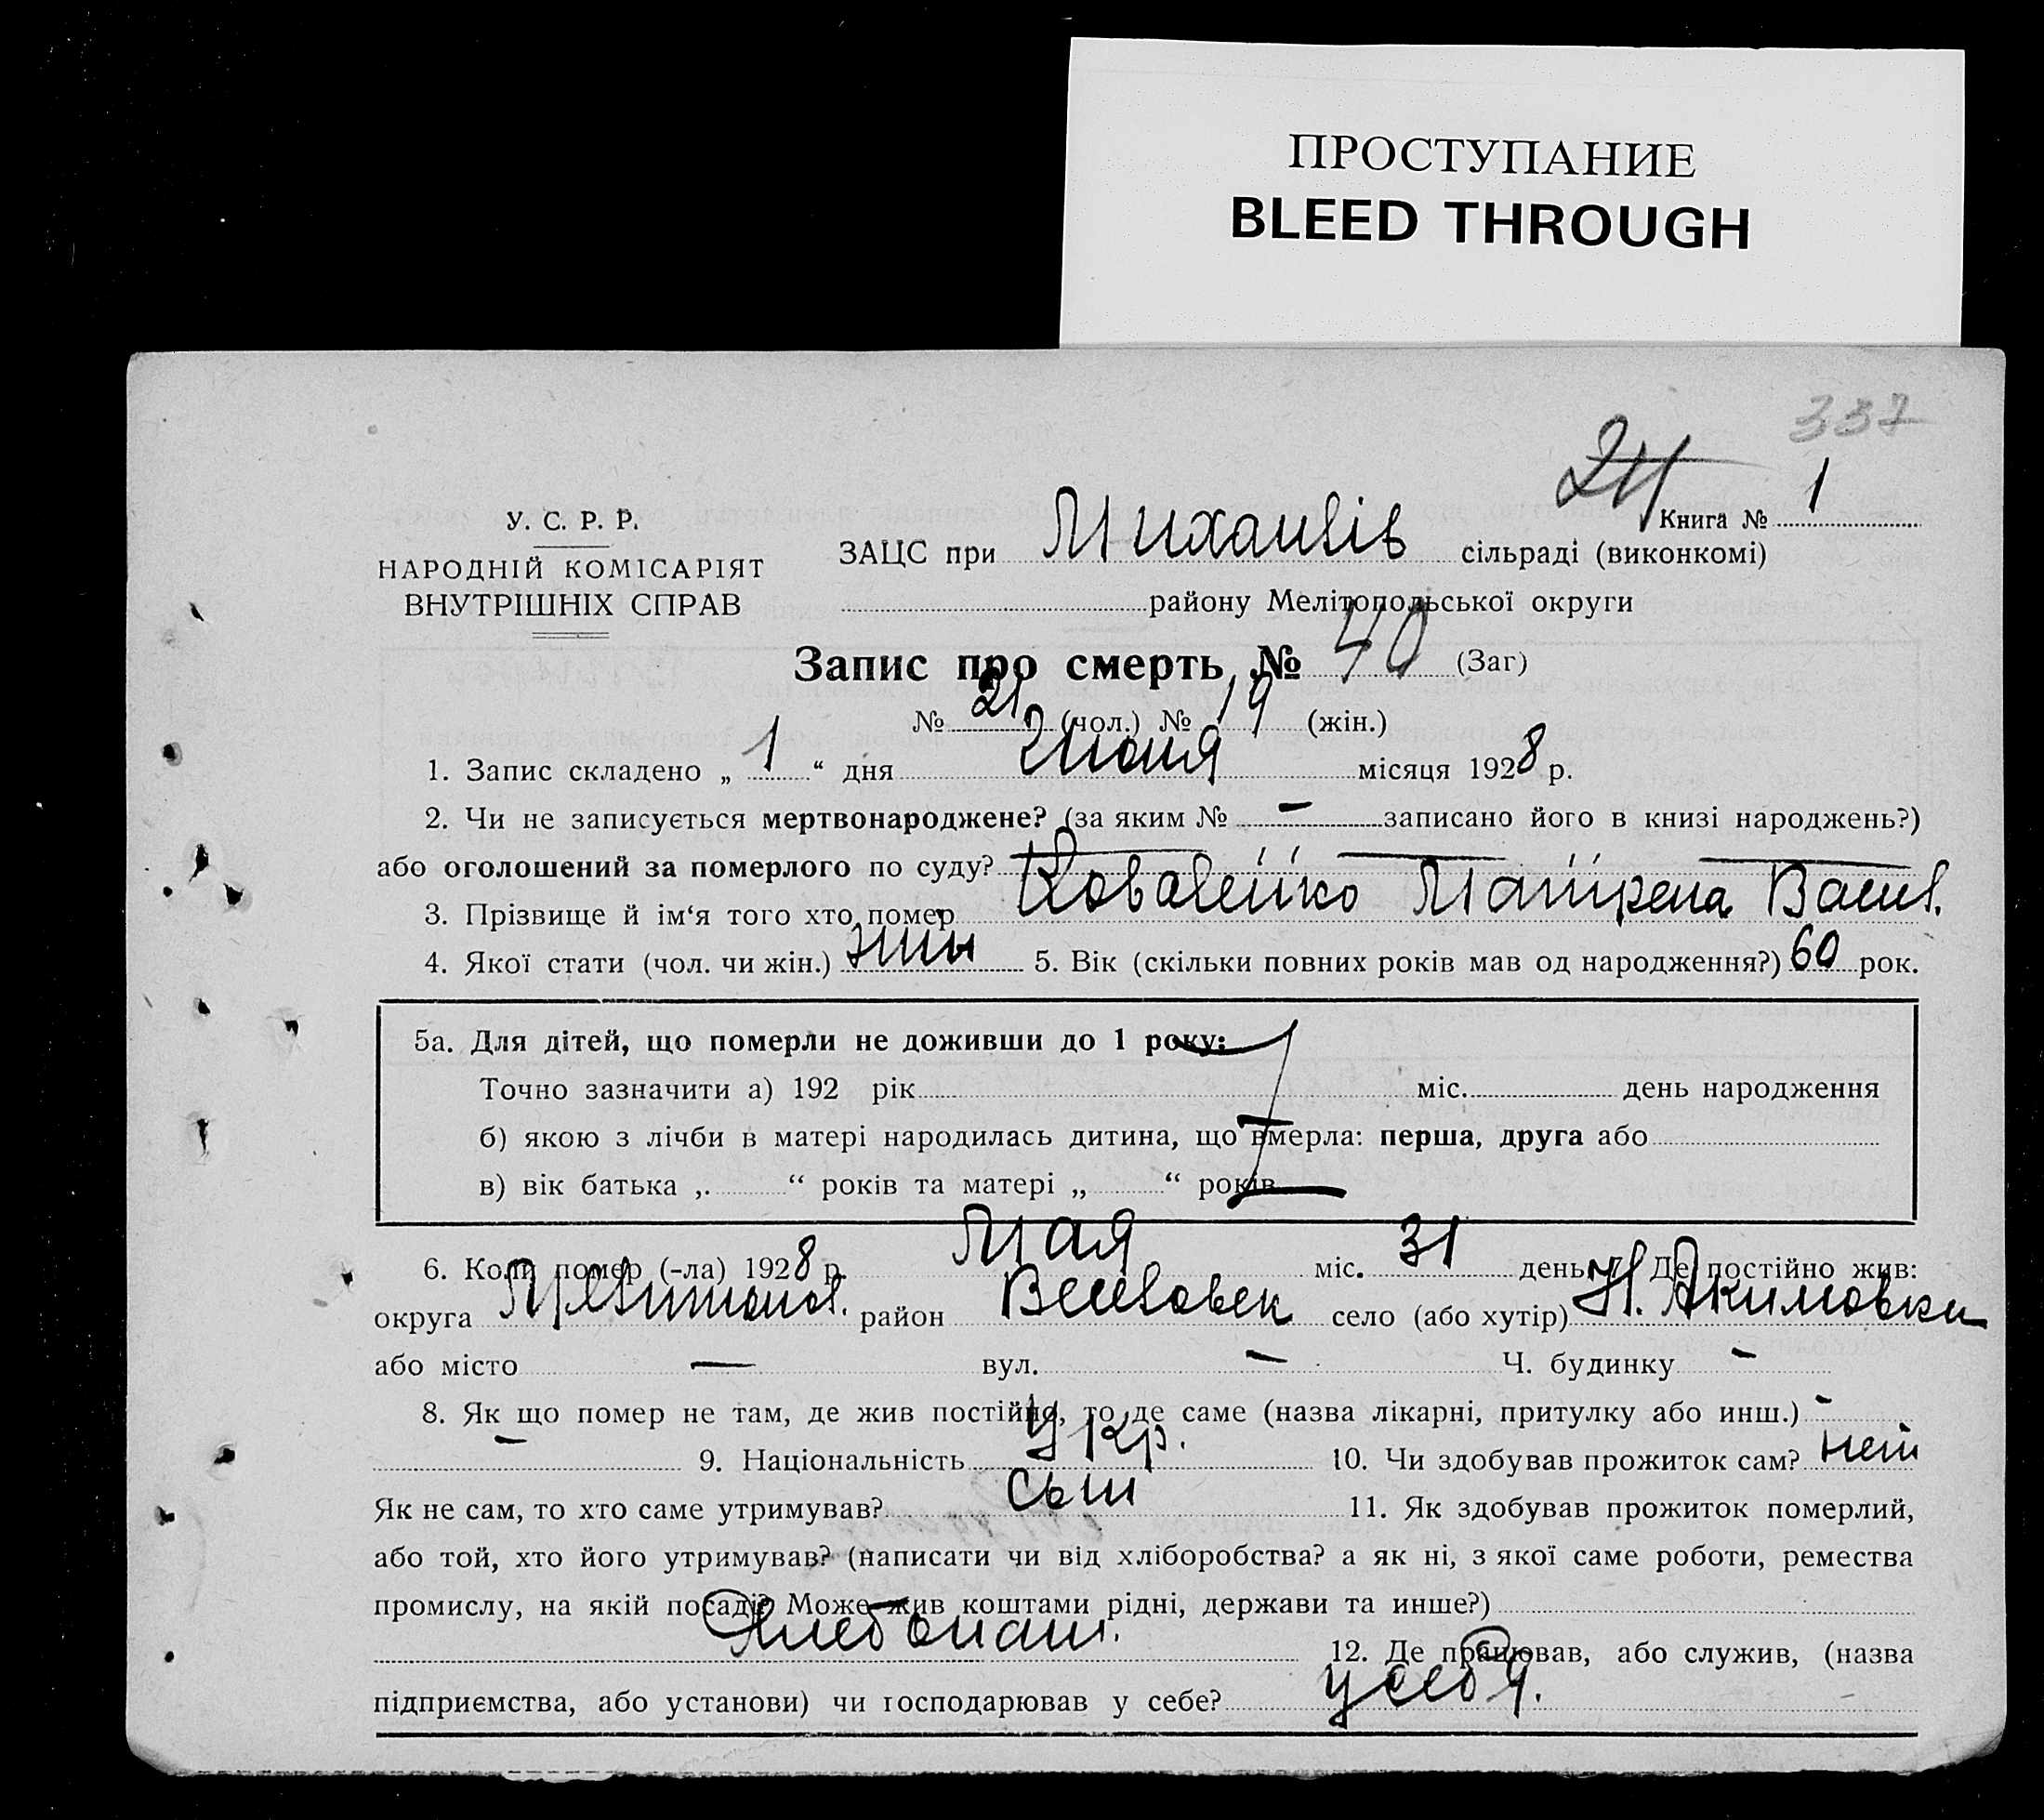 ПРОСТУПАНИЕ
BLEED THROUGH
337
24
Книга № 1
У. С. Р. Р.
НАРОДНІЙ КОМІСАРІЯТ
ВНУТРІШНІХ СПРАВ
ЗАЦС при Михайлів сільраді (виконкомі)
району Мелітопольської округи
Запис про смерть № 40 (Заг)
№ 21 (чол.) № 19 (жін.)
1. Запис складено „ 1 “ дня Июня місяця 1928 р.
2. Чи не записується мертвонароджене? (за яким № — записано його в книзі народжень?)
або оголошений за померлого по суду?
3. Прізвище й ім‘я того хто помер Коваленко Матрена Васил.
4. Якої стати (чол. чи жін.) 5. Вік (скільки повних років мав од народження?) 60 рок.
5а. Для дітей, що померли не доживши до 1 року:
Точно зазначити а) 192 рік міс. день народження
б) якою з лічби в матері народилась дитина, що вмерла: перша, друга або
в) вік батька „ “ років та матері „ “ років
6. Коли помер (-ла) 1928 р. Мая міс. 31 день. 7. Де постійно жив:
округа район Веселовск село (або хутір) Н. Акимовки
або місто — вул. — Ч. будинку —
8. Як що помер не там, де жив постійно, то де саме (назва лікарні, притулку або инш.) —
— 9. Національність Укр. 10. Чи здобував прожиток сам? нет
Як не сам, то хто саме утримував? сын 11. Як здобував прожиток померлий,
або той, хто його утримував? (написати чи від хліборобства? а як ні, з якої саме роботи, ремества
промислу, на якій посаді? Може жив коштами рідні, держави та инше?)
Хлебопаш. 12. Де працював, або служив, (назва
підприємства, або установи) чи господарював у себе? у себя.